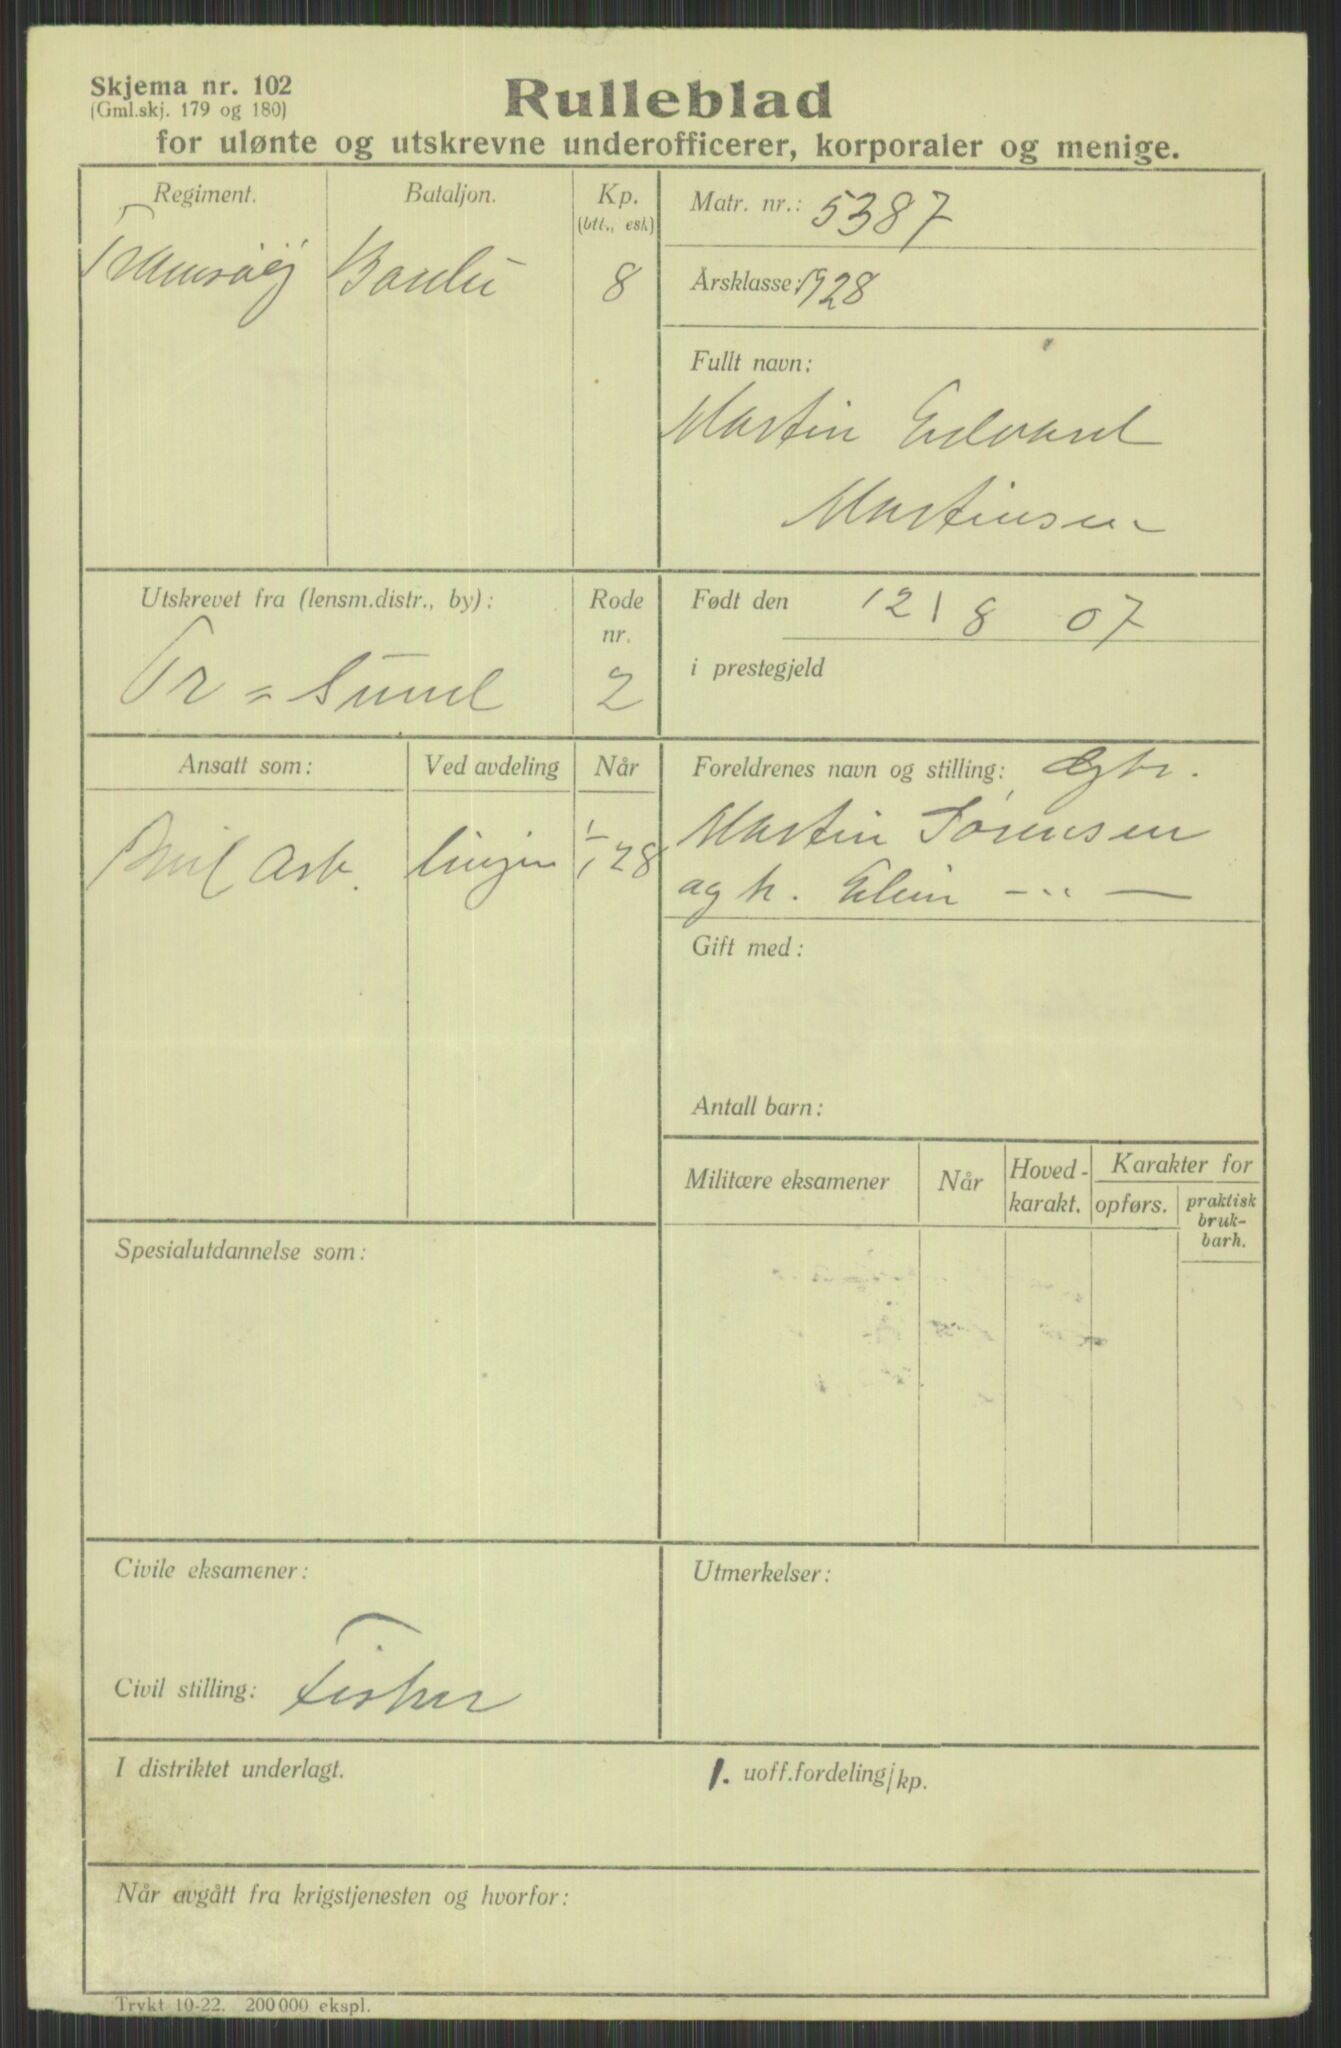 Skjema nr. 102
(Gml.skj. 179 og 180)
Rulleblad
for ulønte og utskrevne underofficerer, korporaler og menige.
Regiment.
Bataljon.
Kp.
(btt., esk)
8
Matr. nr.: 5387
Årsklasse: 1928
Fullt navn:
Martin Edvard
Martinsen
Utskrevet fra (lensm.distr., by):
Tr = Sund
Rode
nr.
2
Født den 12/8 07
i prestegjeld
Ansatt som:
Ved avdeling
Når
Arb.
linjen
1/1 28
Foreldrenes navn og stilling:
Martin Sørensen
og h. Elin — " —
Gift med:
Antall barn:
Militære eksamener
Når
Hoved-
karakt.
Karakter for
opførs.
praktisk
bruk-
barh.
Spesialutdannelse som:
Civile eksamener:
Civil stilling: Fisker
Utmerkelser:
I distriktet underlagt.
1. uoff.fordeling/kp.
Når avgått fra krigstjenesten og hvorfor:
Trykt 10-22. 200 000 ekspl.